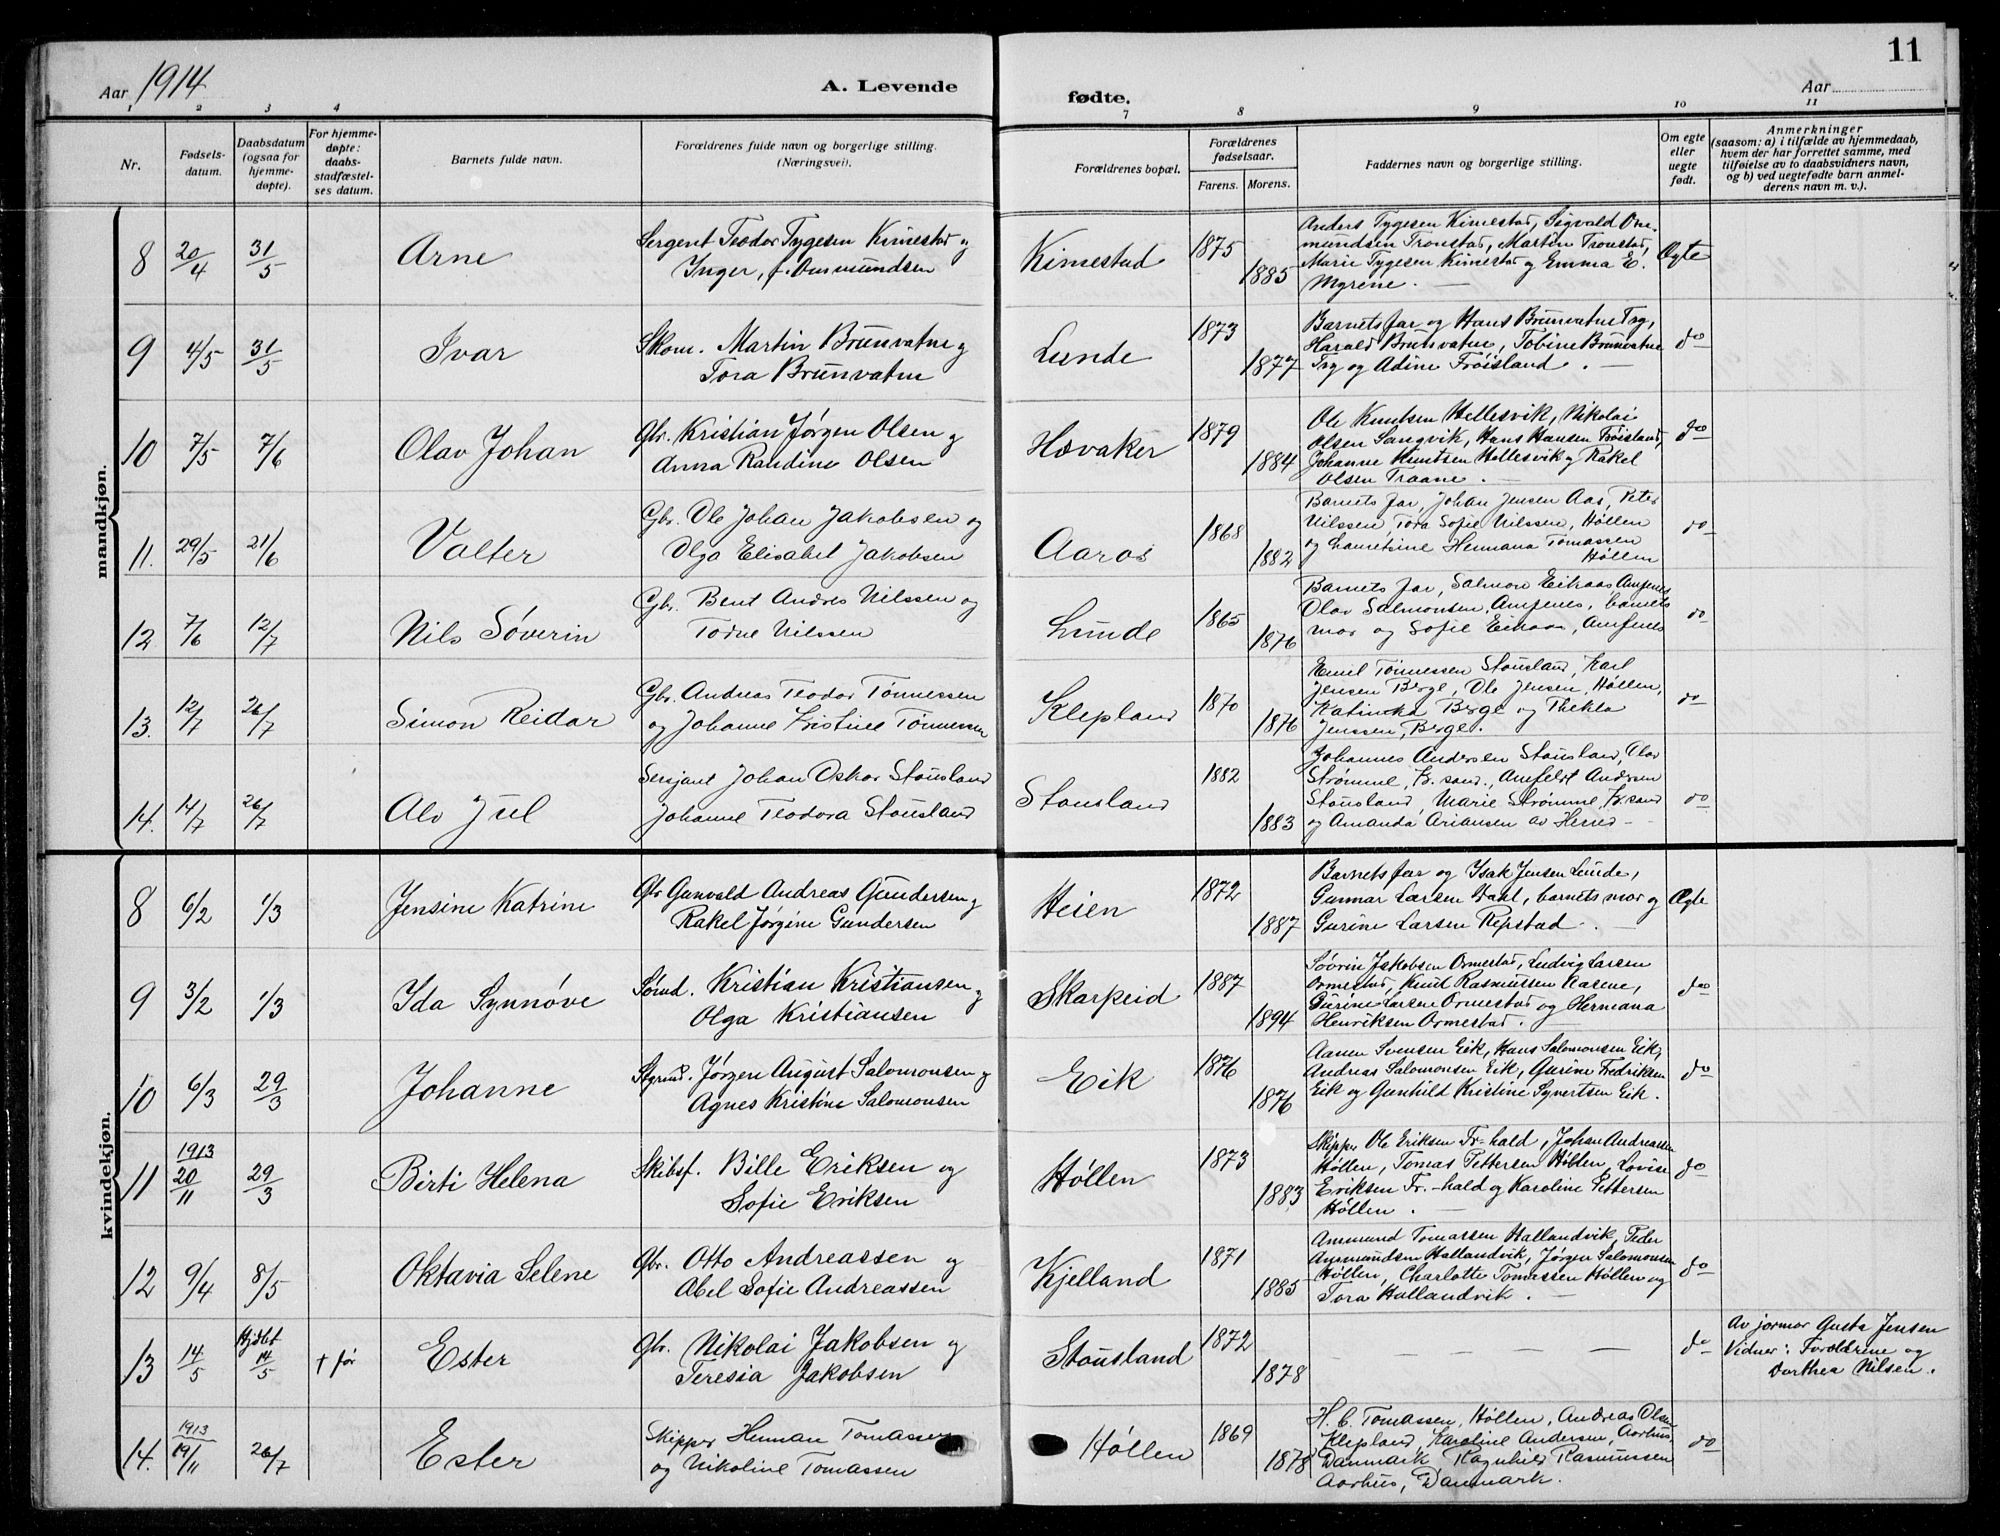 Aar 1914
A. Levende
fødte.
Aar
11
1 2 3 4 7 8 9 10 11
Nr.
Fødsels-
datum.
Daabsdatum
(ogsaa for
hjemme-
døpte).
For hjemme-
døpte:
daabs-
stadfæstel-
ses datum.
Barnets fulde navn.
Forældrenes fulde navn og borgerlige stilling.
(Næringsvei).
Forældrenes bopæl.
Forældrenes
fødselsaar.
Farens. Morens.
Faddernes navn og borgerlige stilling.
Om egte
eller
uegte
født.
Anmerkninger
(saasom: a) i tilfælde av hjemmedaab,
hvem der har forrettet samme, med
tilføielse av to daabsvidners navn,
og b) ved uegtefødte barn anmel-
derens navn m. v.).
mandkjøn.
8 20/4 31/5 Arne
Sergent Teodor Tygesen Kimestad og
Inger, f. Ommundsen
Kimestad 1875 1885
Anders Tygesen Kimestad, Sigvald Om-
mundsen Tronstad, Martin Tronstad,
Marie Tygesen Kimestad og Emma E.
Myrene. —
Ægte
9 4/5 31/5 Ivar
Skom. Martin Brunvatne og
Tora Brunvatne
Lunde 1873 1877
Barnets far og Hans Brunvatne Try,
Harald Brunvatne, Tobine Brunvatne
Try og Adine Frøisland. —
do
10 7/5 7/6 Olav Johan
Gbr. Kristian Jørgen Olsen og
Anna Randine Olsen
Hævaker 1879 1884
Ole Knutsen Hellesvik, Nikolai
Olsen Sangvik, Hans Hansen Frøisland,
Johanne Knutsen Hellesvik og Rakel
Olsen Traane. —
do
11. 29/5 21/6 Valter
Gbr. Ole Johan Jakobsen og
Olga Elisabet Jakobsen
Aaros 1868 1882
Barnets far, Johan Jensen Aas, Peter
Nilssen, Tora Sofie Nilssen, Høllen
og Lauretsine Hermana Tomassen
Høllen
do
12. 7/6 12/7 Nils Søverin
Gbr. Bent Andres Nilssen og
Torne Nilssen
Lunde 1865 1876
Barnets far, Salmon Eikaas Amfenes
Olav Salmonsen, Amfenes, barnets
mor og Sofie Eikaas, Amfenes
do
13. 12/7 26/7 Simon Reidar
Gbr. Andreas Teodor Tønnessen
og Johanne Kristine Tønnessen
Klepland 1870 1876
Emil Tønnessen Stausland, Karl
Jensen Berge, Ole Jensen, Høllen,
Katinka Berge og Thekla
Jenssen, Berge.
do
14. 14/7 26/7 Alv Jul
Sersjant Johan Oskar Stausland
Johanne Teodora Stausland
Stausland 1882 1883
Johannes Andersen Stausland, Olav
Strømme, Kr.sand., Amfeldt Andersen
Stausland, Marie Strømme, Kr.sand
og Amanda Ariansen av Herred —
do
kvindekjøn.
8 6/2 1/3 Jensine Katrine
Gbr Gunvald Andreas Gundersen og
Rakel Jørgine Gundersen
Heien 1872 1887
Barnets far og Isak Jensen Lunde,
Gunnar Larsen Dahl, barnets mor og
Gurine Larsen Repstad. —
Ægte
9 3/2 1/3 Ida Synnøve
Kristian Kristiansen og
Olga Kristiansen
Skarpeid 1887 1894
Søvrin Jakobsen Ormestad, Ludvig Larsen
Ormestad, Knud Rasmussen Kasene,
Gurine Larsen Ormestad og Hermana
Henriksen Ormestad. —
do
10 6/3 29/3 Johanne
Jørgen August Salomonsen og
Agnes Kristine Salomonsen
Eik 1876 1876
Aanen Svensen Eik, Hans Salomonsen Eik,
Andreas Salomonsen Eik, Gurine Fredriksen
Eik og Gunhild Kristine Syvertsen Eik.
do
11 1913 20/11 29/3 Birti Helena
Skibsf. Bille Eriksen og
Sofie Eriksen
Høllen 1873 1883
Skipper Ole Eriksen Fr-hald, Johan Andreassen
Høllen, Tomas Pettersen Høllen, Lovise
Eriksen Fr.-hald og Karoline Pettersen
Høllen. —
do
12 9/4 8/5 Oktavia Selene
Gbr. Otto Andreassen og
Abel Sofie Andreassen
Kjelland 1871 1885
Ammund Tomassen Hallandvik, Peder
Ammundsen Hallandvik, Jørgen Salomonsen
Høllen, Charlotte Tomassen Høllen og
Tora Hallandvik. —
do
13 14/5 Hjdbt 14/5 † før Ester
Gbr. Nikolai Jakobsen og
Teresia Jakobsen
Stausland 1872 1878
— — — — —
do
Av jormor Gusta Jensen
Vidner: Forældrene og
Dorthea Nilsen.
14. 1913 19/11 26/7 Ester
Skipper Herman Tomassen
og Nikoline Tomassen
Høllen 1869 1878
H. C. Tomassen, Høllen, Andreas Olsen
Klepland, Karoline Andersen, Aarhus,
Danmark Ragnhild Rasmussen
Aarhus, Danmark.
do